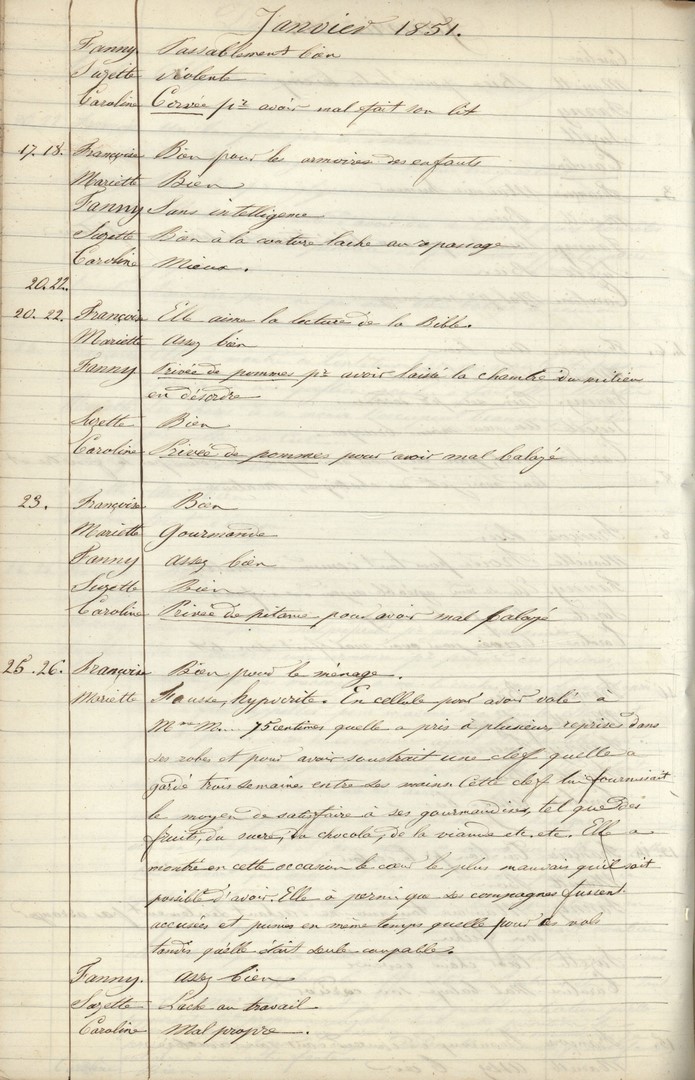 Janvier 1851.
Fanny. Passablement bien
Suzette violente
Caroline Corvée pr avoir mal fait son lit
17. 18. Françoise Bien pour les armoires des enfants
Mariette Bien
Fanny Sans intelligence
Suzette Bien à la couture lache au repassage
Caroline Mieux.
20. 22.
20. 22. Françoise Elle aime la lecture de la Bible.
Mariette assez bien
Fanny Privée de pommes pr avoir laissé la chambre du milieu
en désordre
Suzette Bien
Caroline Privée de pommes pour avoir mal balayé
23. Françoise Bien
Mariette Gourmande
Fanny assez bien
Suzette Bien
Caroline Privée de pitance pour avoir mal balayé
25. 26. Françoise Bien pour le ménage.
Mariette Fausse, hypocrite. En cellule pour avoir volé à
M... M... 75 centimes quelle a pris à plusieurs reprises dans
ses robes et pour avoir soustrait une clef quelle a
gardé trois semaines entre ses mains Cette clef lui fournissait
le moyen de satisfaire à ses gourmandises, tel que des
fruits, du sucre, du chocolat, de la viande etc. etc. Elle a
montré en cette occasion le cœur le plus mauvais qu'il soit
possible d'avoir. Elle a permi que ses compagnes fussent
accusées et punies en même temps quelle pour ces vols
tandis qu'elle était seule coupable.
Fanny. assez bien
Suzette Lache au travail
Caroline Mal propre.